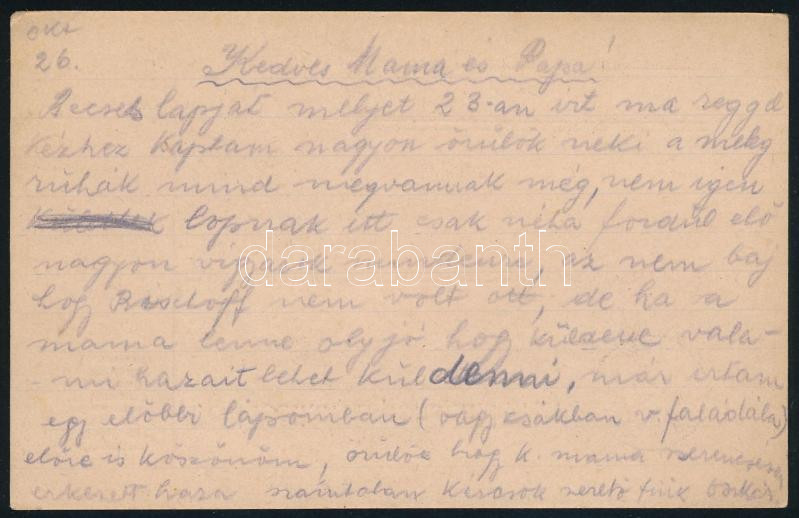 okt
26.
Kedves Mama és Papa!
Becses lapját melyet 23-an irt ma reggel
Kézhez Kaptam nagyon örülök neki a meleg
ruhák mind megvannak még, nem igen
lopnak itt csak néha fordul elő
nagyon vigyazok mindenre, az nem baj
hog Bischoff nem volt ott, de ha a
mama lenne oly jó hog küldene vala-
-mi hazait lehet küldenni, már irtam
egy előbbi lapomban (vagy zsákban v. faládába)
előre is köszönöm, örülök hog k. mama szerencsésen
erkezett haza számtalan Kézcsók szerető fiuk Oszkár
darabanth